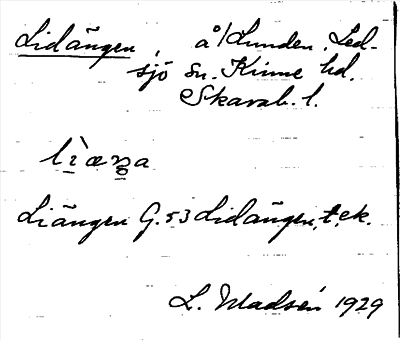 Lidängen, å/Lunden, Led-
sjö sn. Kinne hd.
Skarab. l.
lìæŋa
Liängen G. 53 Lidängen, t. ek.
L. Madsén 1929